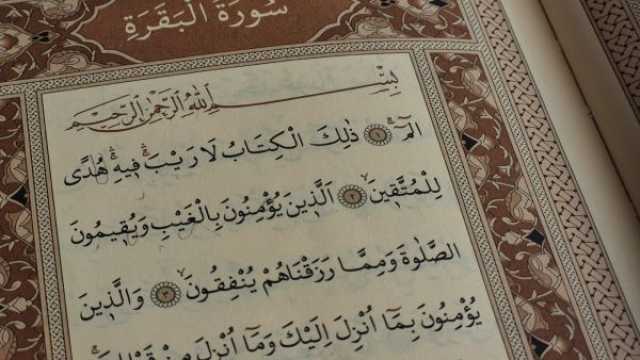 سُورَةُ الْبَقَرَةِ
بِسْمِ اللّٰهِ الرَّحْمٰنِ الرَّحٖيمِ
الٓمٓ ۚ ﴿١﴾ ذٰلِكَ الْكِتَابُ لَا رَيْبَ ۚۛ فٖيهِ ۚۛ هُدًى
لِلْمُتَّقٖينَ ۙ ﴿٢﴾ اَلَّذٖينَ يُؤْمِنُونَ بِالْغَيْبِ وَيُقٖيمُونَ
الصَّلٰوةَ وَمِمَّا رَزَقْنَاهُمْ يُنْفِقُونَ ۙ ﴿٣﴾ وَالَّذٖينَ
يُؤْمِنُونَ بِمَٓا اُنْزِلَ اِلَيْكَ وَمَٓا اُنْزِلَ مِنْ قَبْلِكَ ۚ